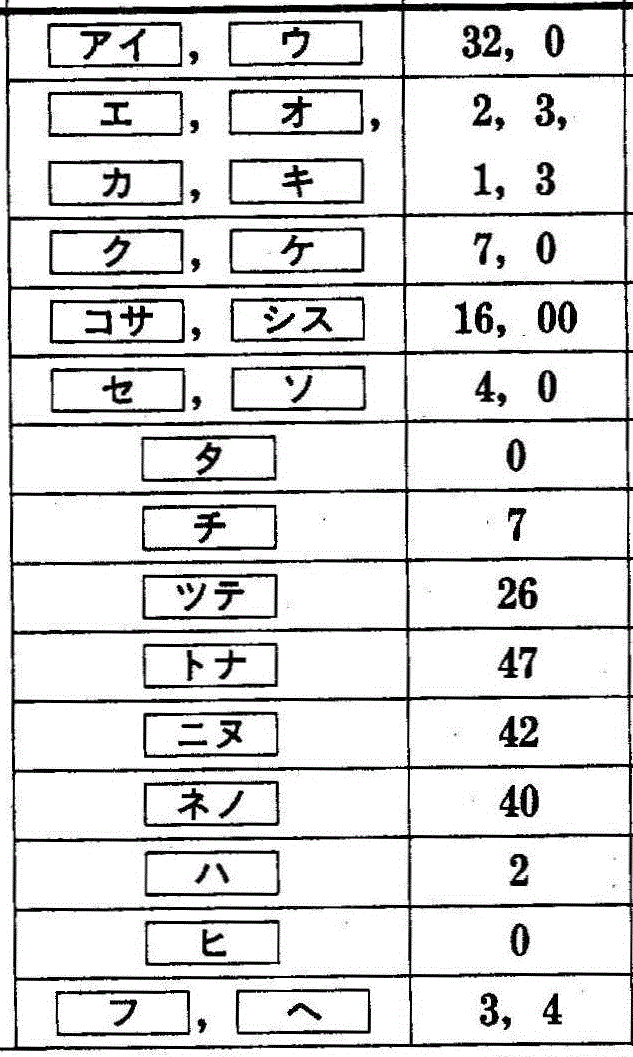 アイ, ウ 32, 0
エ, オ, 2, 3,
カ, キ 1, 3
ク, ケ 7, 0
コサ, シス 16, 00
セ, ソ 4, 0
タ 0
チ 7
ツテ 26
トナ 47
ニヌ 42
ネノ 40
ハ 2
ヒ 0
フ, ヘ 3, 4